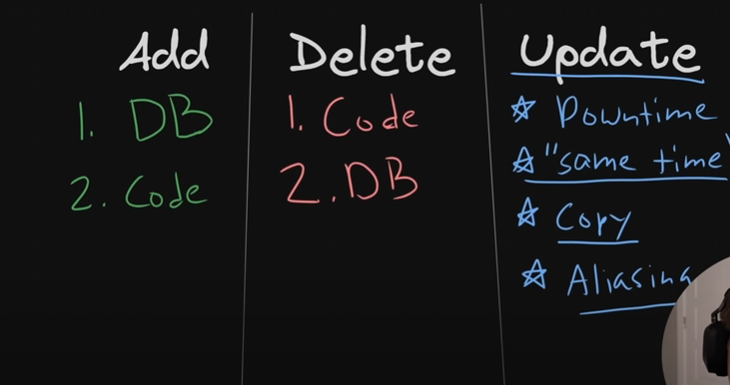 Add
1. DB
2. Code
Delete
1. Code
2. DB
Update
☆ Downtime
☆ "same time"
☆ Copy
☆ Aliasing